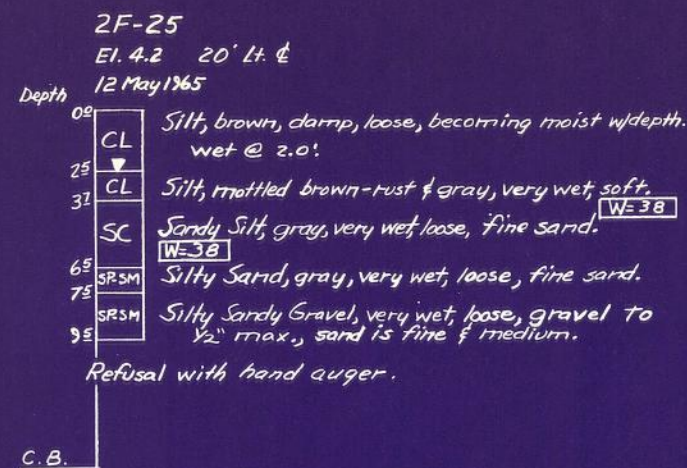 2F-25
El. 4.2 20' Lt. ℄
12 May 1965
Depth
0.0
CL
Silt, brown, damp, loose, becoming moist w/depth.
wet @ 2.0'.
2.5
CL
Silt, mottled brown-rust & gray, very wet, soft.
W=38
3.7
SC
Sandy Silt, gray, very wet, loose, fine sand.
W=38
6.5
SP-SM
Silty Sand, gray, very wet, loose, fine sand.
7.5
SP-SM
Silty Sandy Gravel, very wet, loose, gravel to
1/2" max., sand is fine & medium.
9.5
Refusal with hand auger.
C.B.